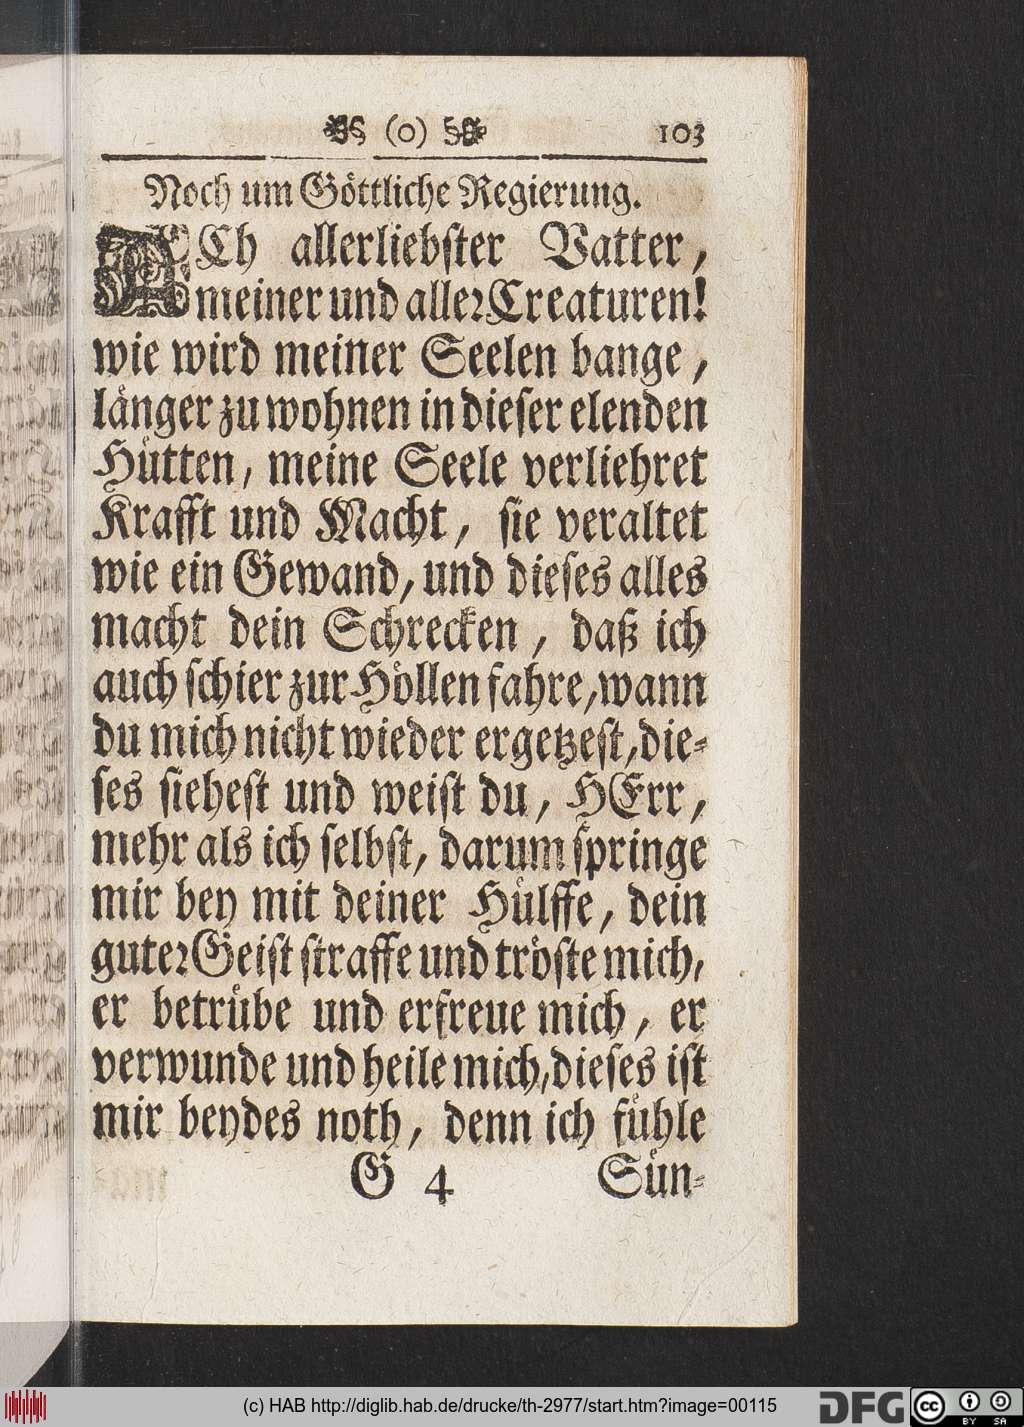 (o) 103
Noch um Göttliche Regierung.
ACh allerliebster Vatter,
meiner und aller Creaturen!
wie wird meiner Seelen bange,
länger zu wohnen in dieser elenden
Hütten, meine Seele verliehret
Krafft und Macht, sie veraltet
wie ein Gewand, und dieses alles
macht dein Schrecken, daß ich
auch schier zur Höllen fahre, wann
du mich nicht wieder ergetzest, die-
ses siehest und weist du, HErr,
mehr als ich selbst, darum springe
mir bey mit deiner Hülffe, dein
guter Geist straffe und tröste mich,
er betrübe und erfreue mich, er
verwunde und heile mich, dieses ist
mir beydes noth, denn ich fühle
G 4 Sün-
(c) HAB http://diglib.hab.de/drucke/th-2977/start.htm?image=00115
DFG cc BY SA